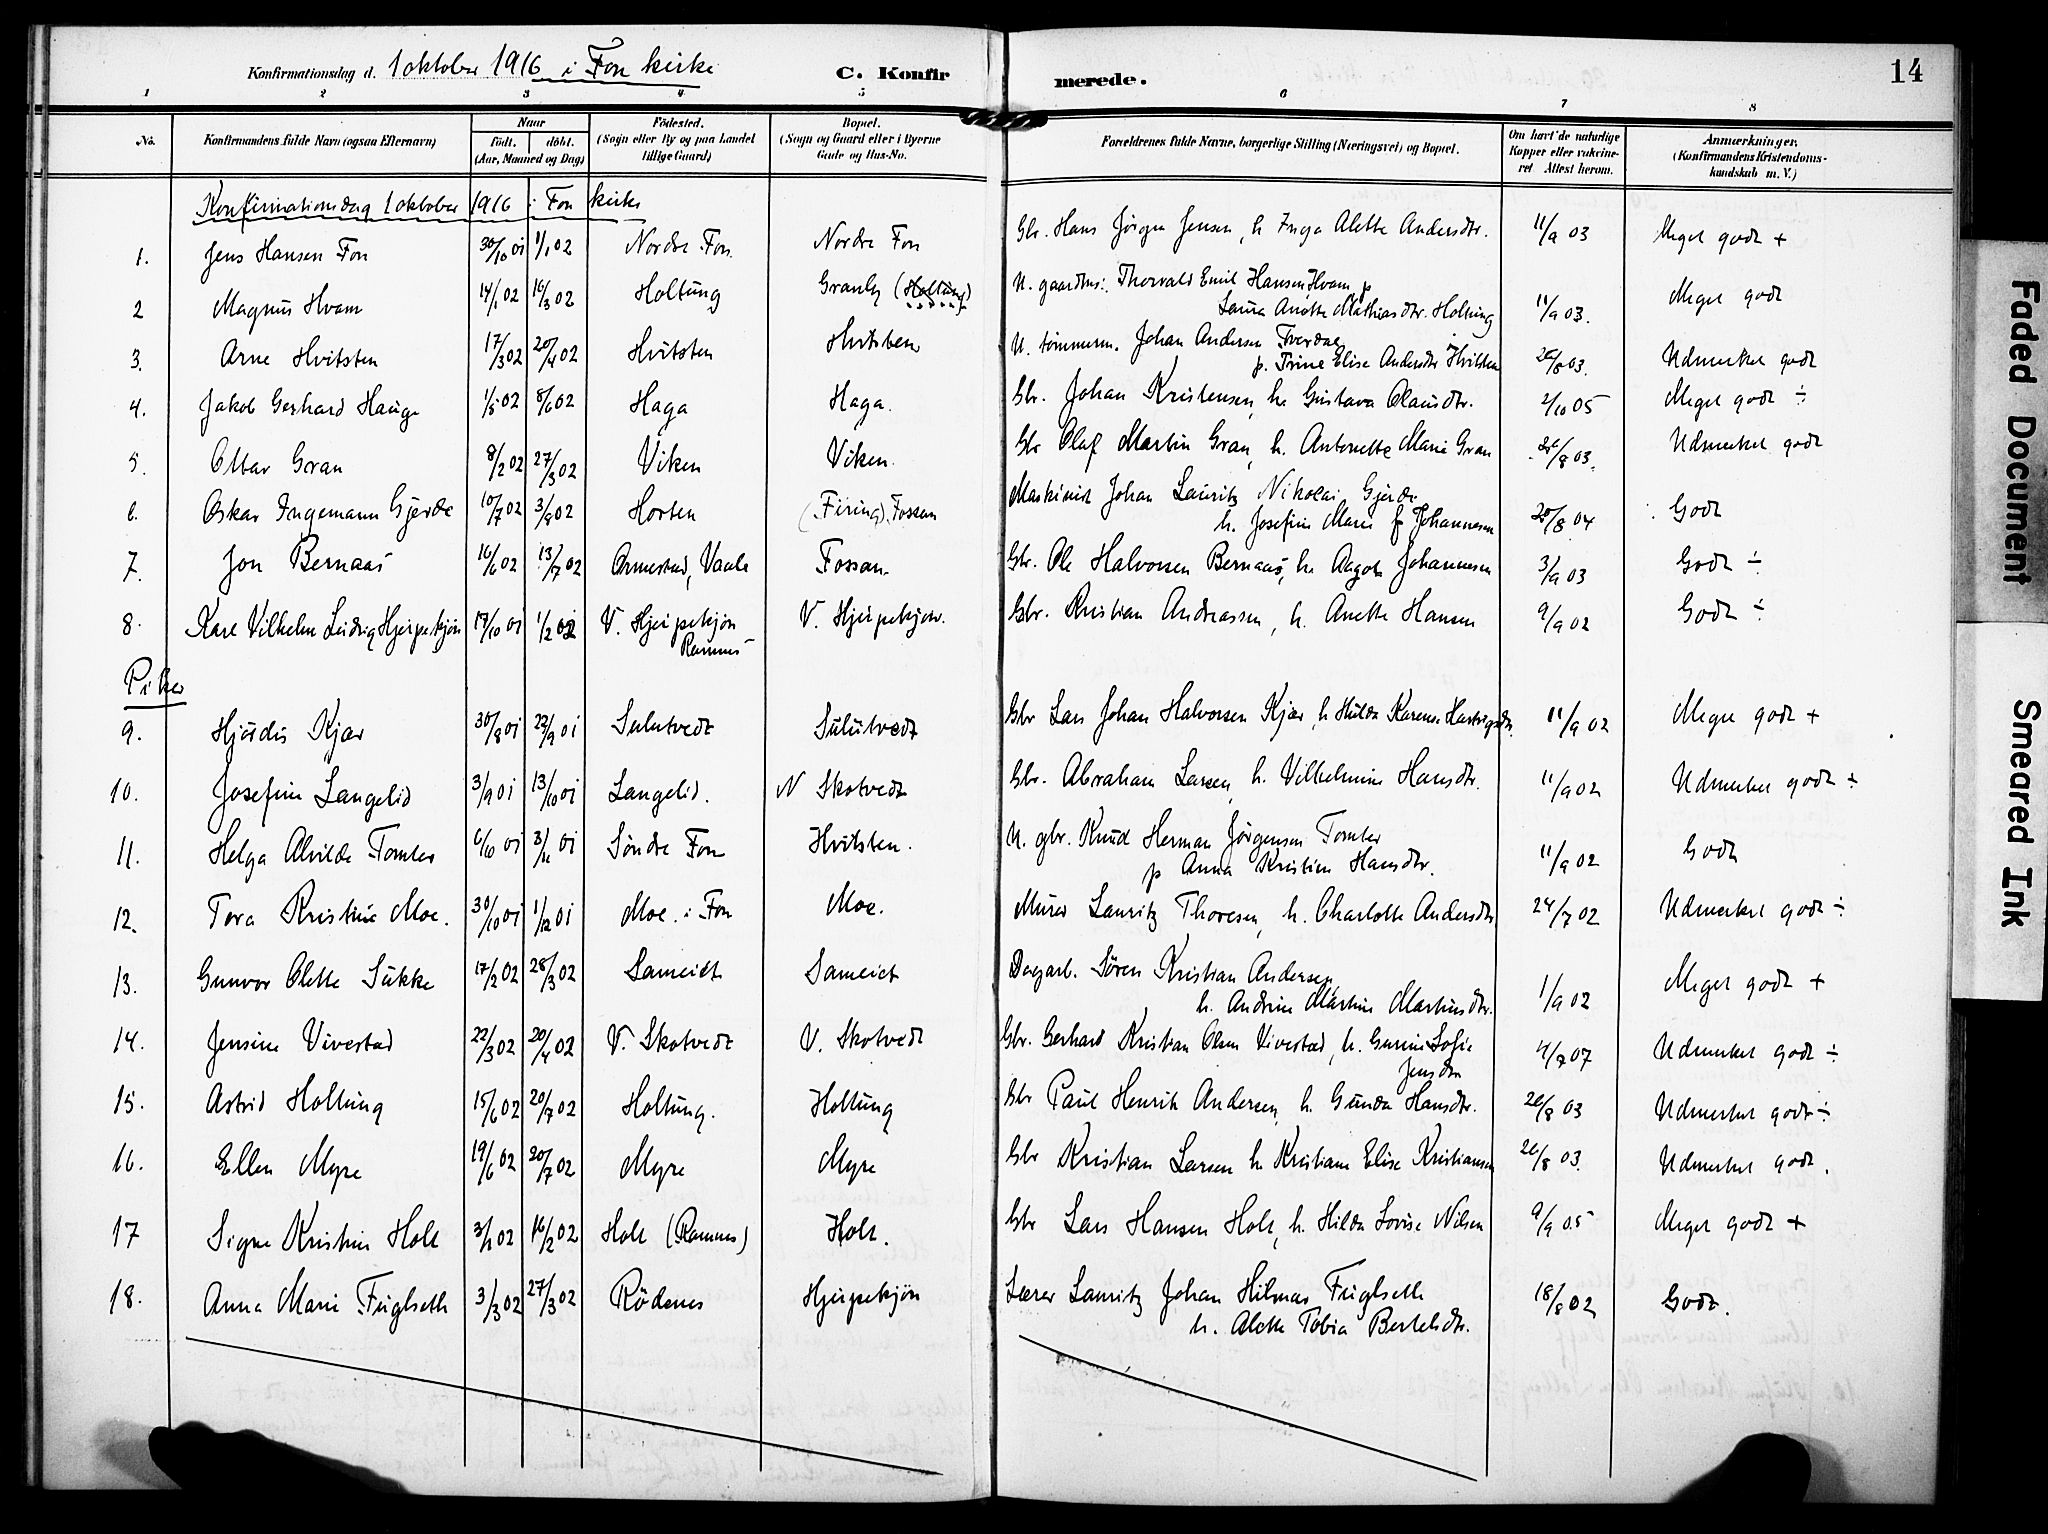 Konfirmationsdag d. 1 oktober 1916 i Fon kirke
C. Konfirmerede.
14
1 2 3 4 5 6 7 8
No.
Konfirmandens fulde Navn (ogsaa Efternavn)
Naar
født. døbt.
(Aar, Maaned og Dag)
Fødested.
(Sogn eller By og paa Landet
tillige Gaard)
Bopæl.
(Sogn og Gaard eller i Byerne
Gade og Hus-No.
Forældrenes fulde Navne, borgerlige Stilling (Næringsvei) og Bopæl.
Om havt de naturlige
Kopper eller vakcine-
ret Attest herom.
Anmærkninger.
(Konfirmandens Kristendoms-
kundskab m. V.)
Konfirmationsdag 1 oktober 1916 i Fon kirke
1. Jens Hansen Fon 30/10 01 1/1 02 Nordre Fon. Nordre Fon Gbr. Hans Jörgen Jensen, h. Inga Alette Andersdtr. 11/9 03 Meget godt +
2 Magnus Hvam 14/1 02 16/3 02 Holtung Granly (Holtung) U. gaardbr. Thorvald Emil Hansen Hvam p
Laura Anette Mathiasdtr. Holtung 11/9 03. Meget godt
3. Arne Hvitsten 17/3 02 20/4 02 Hvitsten Hvitsten U. tømmerm. Johan Andersen Tverdal
p. Trine Elise Andersdtr Hvitsten 26/8 03. Udmerket godt
4. Jakob Gerhard Hauge 1/5 02 8/6 02 Haga Haga. Gbr. Johan Kristensen, h. Gustava Olausdtr. 2/10 05 Meget godt ÷
5. Ottar Gran 8/2 02 27/3 02 Viken Viken. Gbr Olaf Martin Gran, h. Antonette Marie Gran 26/8 03. Udmerket godt
6. Oskar Ingemann Gjerde 10/7 02 3/8 02 Horten (Firing) Fossan Maskinist Johan Lauritz Nikolai Gjerde
h. Josefine Marie f Johannesen 20/8 04 Godt
7. Jon Bernaas 16/6 02 13/7 02 Ormestad, Vaale Fossan. Gbr. Ole Halvorsen Bernaas, h. Aagot Johannesen 3/9 03 Godt ÷
8. Karl Vilhelm Ludvig Hjerpekjøn 17/10 01 1/2 02 V. Hjerpekjøn V. Hjerpekjøn. Gbr. Kristian Andreassen, h. Anette Hansen 9/9 02 Godt ÷
Ramnes
Piker
9. Hjördis Kjær 30/8 01 22/9 01 Sulutvedt Sulutvedt Gbr Lars Johan Halvorsen Kjær, h. Hulda Karense Hartvigsdtr. 11/9 02 Meget godt +
10. Josefine Langelid 3/9 01 13/10 01 Langelid. N Skotvedt Gbr. Abraham Larsen, h. Vilhelmine Hansdtr. 11/9 02 Udmerket godt ÷
11. Helga Alvilde Tomter 6/10 01 3/11 01 Søndre Fon Hvitsten. U. gbr. Knud Herman Jörgensen Tomter
p Anna Kristine Hansdtr. 11/9 02 Godt
12. Tora Kristine Moe. 30/10 01 1/12 01 Moe i Fon Moe. Murer Lauritz Thoresen, h. Charlotte Andersdtr 24/7 02 Udmerket godt ÷
13. Gunvor Olette Sukke 17/2 02 28/3 02 Sameiet Sameiet Dagarb. Sören Kristian Andersen,
h. Andrine Martine Martinsdtr. 1/9 02 Meget godt +
14. Jensine Vivestad 22/3 02 20/4 02 V. Skotvedt V. Skotvedt Gbr. Gerhard Kristian Olsen Vivestad, h. Gurine Sofie
Jensdtr 4/7 07 Udmerket godt ÷
15. Astrid Holtung 15/6 02 20/7 02 Holtung. Holtung Gbr Paul Henrik Andersen, h. Gunda Hansdtr. 26/8 03 Udmerket godt ÷
16. Ellen Myre 19/6 02 20/7 02 Myre Myre Gbr Kristian Larsen h. Kristiane Elise Kristiansen 26/8 03. Udmerket godt.
17 Signe Kristine Holt 3/1 02 16/2 02 Holt (Ramnes) Holt. Gbr Lars Hansen Holt, h. Hilda Lovise Nilsen 9/9 05 Meget godt +
18. Anna Marie Fuglseth 3/3 02 27/3 02 Rödenes Hjerpekjøn Lærer Lauritz Johan Hilmar Fuglseth
h. Alette Tobia Bertelsdtr. 18/8 02 Godt.
Faded Document
Smeared Ink